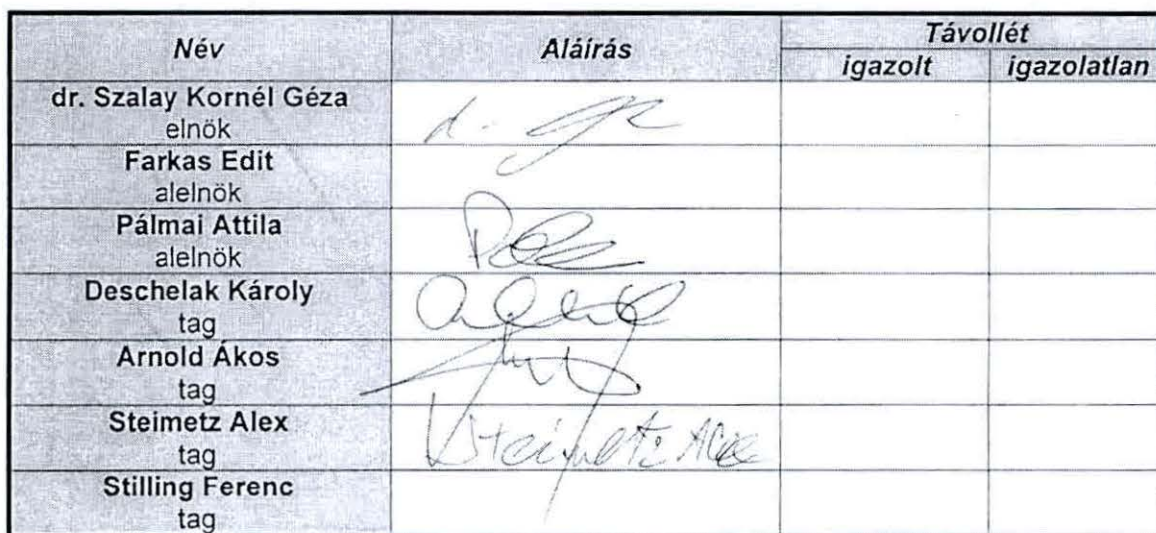 Név Aláírás Távollét
igazolt igazolatlan
dr. Szalay Kornél Géza
elnök
Farkas Edit
alelnök
Pálmai Attila
alelnök
Deschelak Károly
tag
Arnold Ákos
tag
Steimetz Alex
tag
Steimetz Alex
Stilling Ferenc
tag